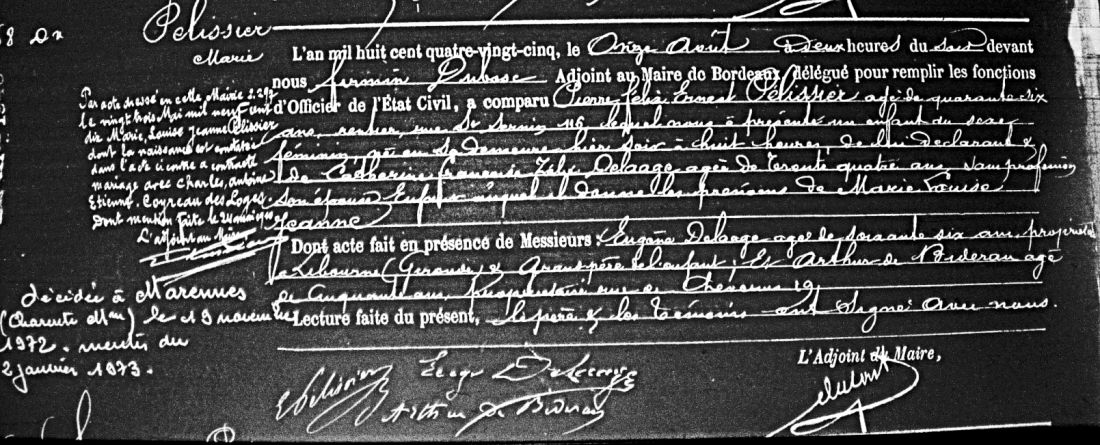 Pelissier
Marie
L'an mil huit cent quatre-vingt-cinq, le Onze Août à Deux heures du soir devant
nous Firmin Dubosc Adjoint au Maire de Bordeaux, délégué pour remplir les fonctions
d'Officier de l'État Civil, a comparu Pierre Felix Ernest Pélissier agé de quarante six
ans, rentier, rue St Sernin 116 lequel nous a présenté un enfant du sexe
féminin, né en sa demeure hier soir à huit heures, de lui Déclarant &
de Catherine Françoise Zélie Delaage agée de trente quatre ans, sans profession
son épouse Enfant auquel il donne les prénoms de Marie Louise
Jeanne
Dont acte fait en présence de Messieurs : Eugène Delaage agé de soixante six ans, propriétaire
à Libourne (Gironde) & Grand père de l'enfant ; Et Arthur de Bideran agé
de Cinquante ans, propriétaire rue de Cheverus 19
Lecture faite du présent, le père & les témoins ont signé avec nous.
L'Adjoint du Maire,
EPélissier
Delaage
Arthur de Bideran
Par acte dressé en cette Mairie
le vingt trois Mai mil neuf cent
dix Marie Louise Jeanne Pelissier
dont la naissance est constatée
dans l'acte ci contre a contracté
mariage avec Charles, Antoine
Etienne Coyreau des Loges.
Dont mention faite le 24 mai 1910
L'adjoint au Maire
décédée à Marennes
(Charente Mme) le 19 novembre
1972. mention du
2 janvier 1973.